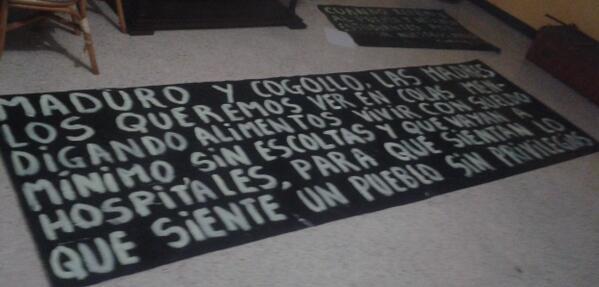 MADURO Y COGOLLO, LAS MADRES
LOS QUEREMOS VER EN COLAS MEN-
DIGANDO ALIMENTOS VIVIR CON SUELDO
MÍNIMO SIN ESCOLTAS Y QUE VAYAN A
HOSPITALES, PARA QUE SIENTAN LO
QUE SIENTE UN PUEBLO SIN PRIVILEGIOS